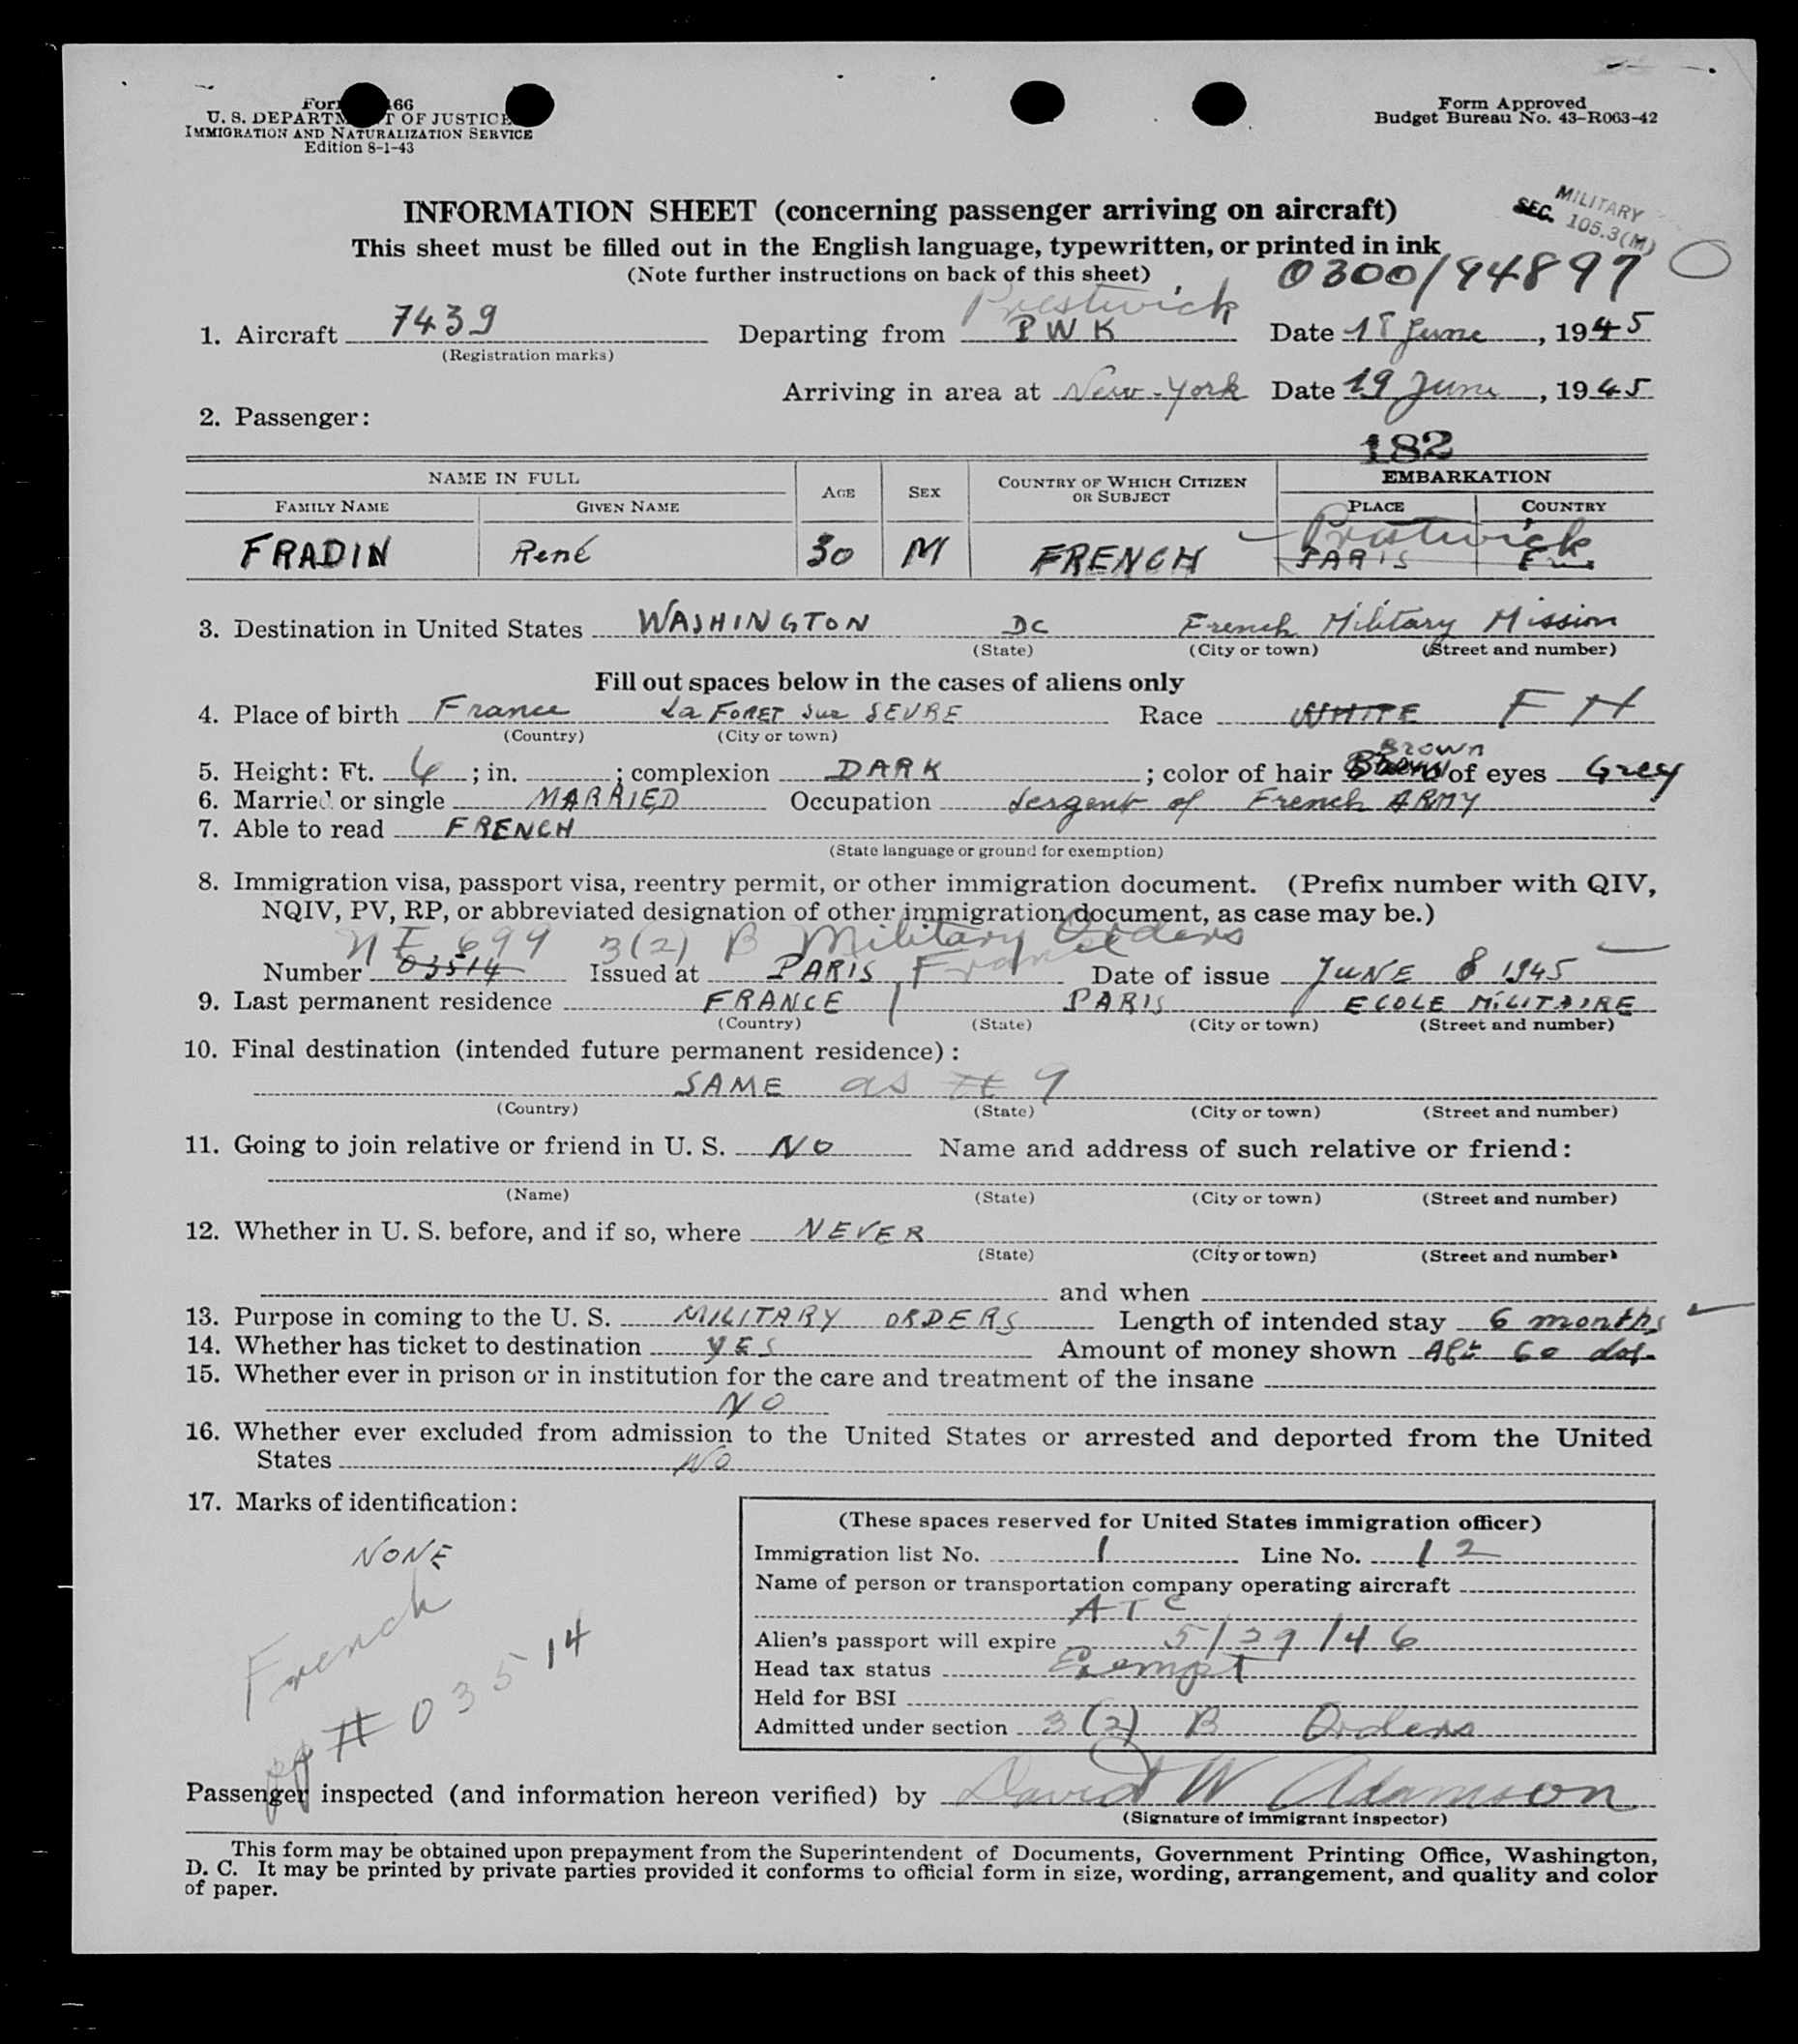 66
U. S. DEPARTM T OF JUSTICE
IMMIGRATION AND NATURALIZATION SERVICE
Edition 8-1-43
Form Approved
Budget Bureau No. 43-R063-42
INFORMATION SHEET (concerning passenger arriving on aircraft)
MILITARY
SEC. 105.3(M)
This sheet must be filled out in the English language, typewritten, or printed in ink
(Note further instructions on back of this sheet)
0300/94897
Prestwick
1. Aircraft 7439 Departing from PWK Date 18 June, 1945
(Registration marks)
Arriving in area at New-York Date 19 June, 1945
2. Passenger:
182
NAME IN FULL AGE SEX COUNTRY OF WHICH CITIZEN OR SUBJECT EMBARKATION
FAMILY NAME GIVEN NAME PLACE COUNTRY
Prestwick
FRADIN René 30 M FRENCH PARIS
3. Destination in United States WASHINGTON DC French Military Mission
(State) (City or town) (Street and number)
Fill out spaces below in the cases of aliens only
4. Place of birth France La FORET Sur SEVRE Race WHITE FH
(Country) (City or town)
Brown
5. Height: Ft. 6; in. ; complexion DARK; color of hair of eyes Grey
6. Married or single MARRIED Occupation Sergent of French ARMY
7. Able to read FRENCH
(State language or ground for exemption)
8. Immigration visa, passport visa, reentry permit, or other immigration document. (Prefix number with QIV,
NQIV, PV, RP, or abbreviated designation of other immigration document, as case may be.)
3(2) B Military Orders
Number 03514 Issued at PARIS, France Date of issue JUNE 8 1945
9. Last permanent residence FRANCE PARIS ECOLE MILITAIRE
(Country) (State) (City or town) (Street and number)
10. Final destination (intended future permanent residence):
SAME as # 9
(Country) (State) (City or town) (Street and number)
11. Going to join relative or friend in U. S. NO Name and address of such relative or friend:
(Name) (State) (City or town) (Street and number)
12. Whether in U. S. before, and if so, where NEVER
(State) (City or town) (Street and number)
and when
13. Purpose in coming to the U. S. MILITARY ORDERS Length of intended stay 6 months
14. Whether has ticket to destination YES Amount of money shown 60 dol.
15. Whether ever in prison or in institution for the care and treatment of the insane
NO
16. Whether ever excluded from admission to the United States or arrested and deported from the United
States NO
17. Marks of identification:
NONE
French
pp # 03514
(These spaces reserved for United States immigration officer)
Immigration list No. 1 Line No. 12
Name of person or transportation company operating aircraft
ATC
Alien's passport will expire 5/29/46
Head tax status Exempt
Held for BSI
Admitted under section 3(2) B Orders
Passenger inspected (and information hereon verified) by David W Adamson
(Signature of immigrant inspector)
This form may be obtained upon prepayment from the Superintendent of Documents, Government Printing Office, Washington,
D. C. It may be printed by private parties provided it conforms to official form in size, wording, arrangement, and quality and color
of paper.